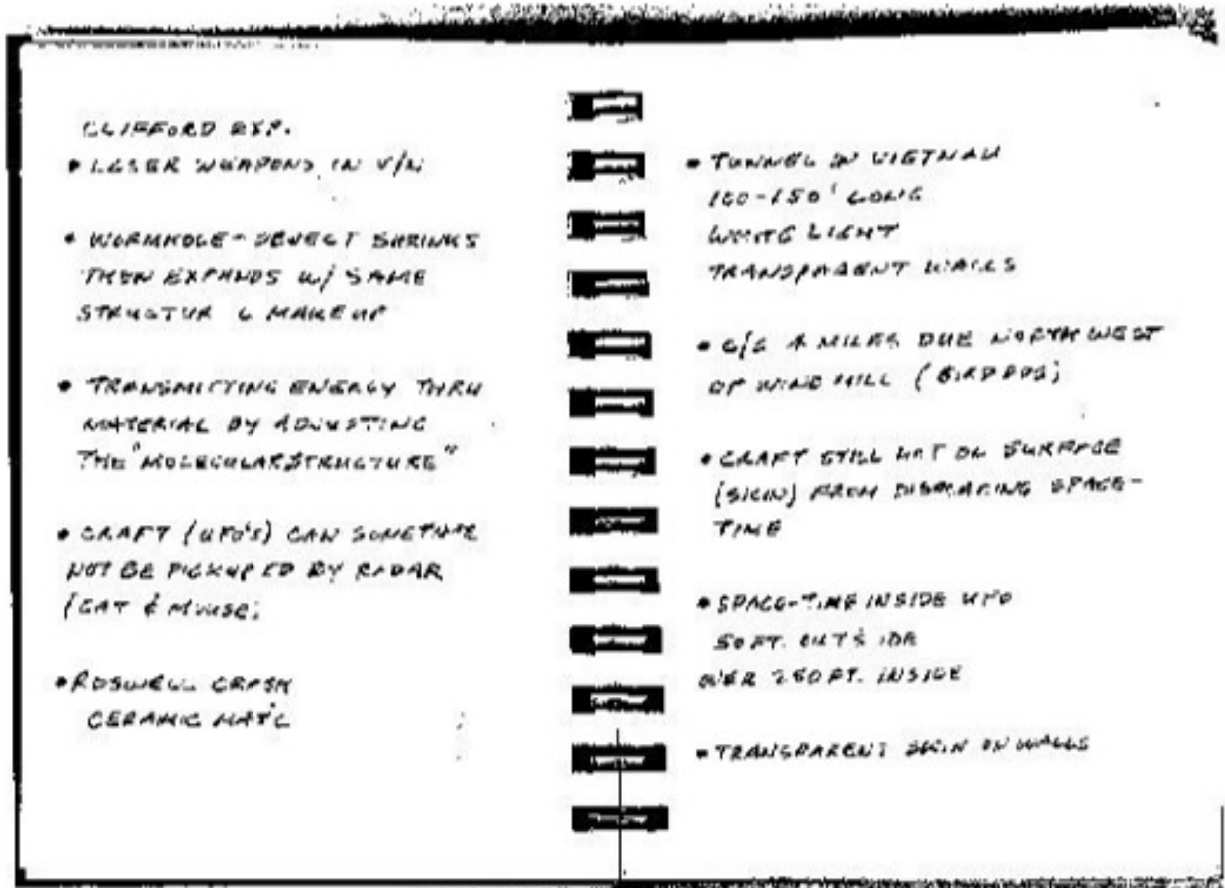 CLIFFORD EXP.
• LASER WEAPONS IN V/N
• WORMHOLE - OBJECT SHRINKS
THEN EXPANDS W/ SAME
STRUCTUR & MAKEUP
• TRANSMITTING ENERGY THRU
MATERIAL BY ADJUSTING
THE "MOLECULAR STRUCTURE"
• CRAFT (UFO'S) CAN SOMETIME
NOT BE PICKUPED BY RADAR
(CAT & MOUSE)
• ROSWELL CRASH
CERAMIC MAT'L
• TUNNEL IN VIETNAM
100-150' LONG
WHITE LIGHT
TRANSPARENT WALLS
• 4 MILES DUE NORTH WEST
OF WIND MILL (BIRD DOG)
• CRAFT STILL HOT ON SURFACE
(SKIN) FROM DISPLACING SPACE-
TIME
• SPACE-TIME INSIDE UFO
50 FT. OUTSIDE
OVER 250 FT. INSIDE
• TRANSPARENT SKIN ON WALLS